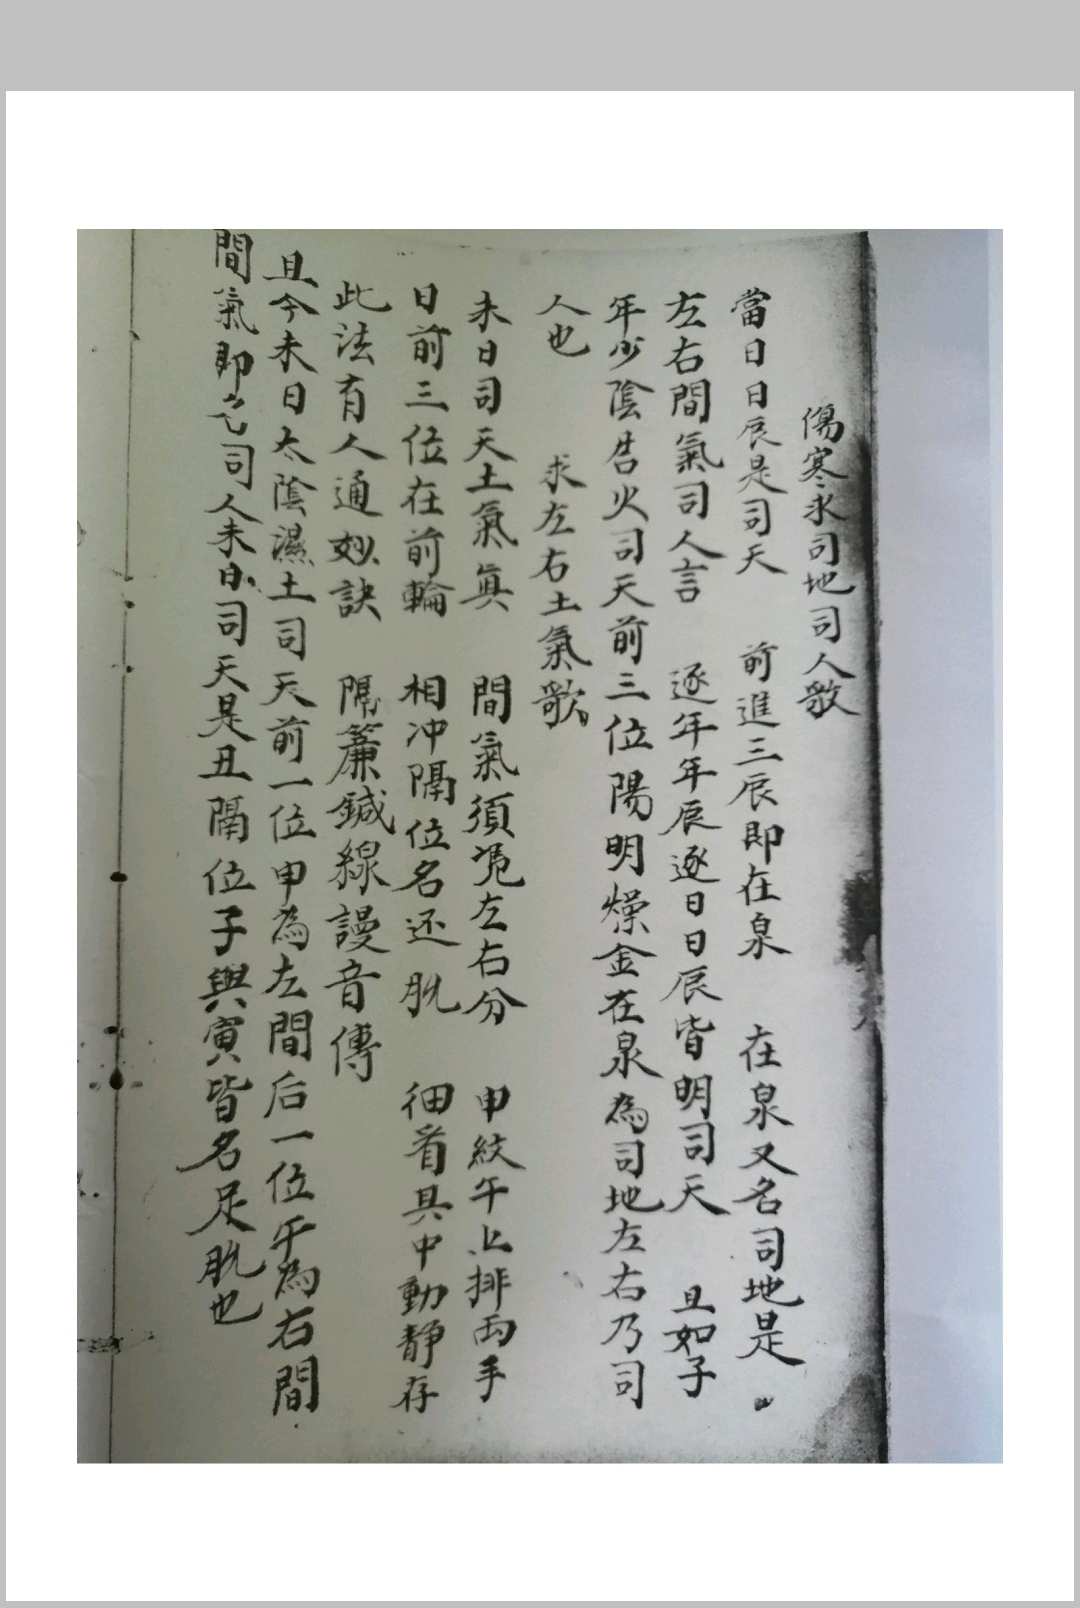 傷寒求司地司人歌
當日日辰是司天　前進三辰即在泉　在泉又名司地是
左右間氣司人言　逐年年辰逐日日辰皆明司天　且如子
年少陰君火司天前三位陽明燥金在泉為司地左右乃司
人也　求左右土氣歌
未日司天土氣真　間氣須凴左右分　申紋午上排両手
日前三位在前輪　相冲隔位名还肍　细看其中動靜存
此法有人通妙訣　隔簾鍼線謾音傳
且今未日太陰濕土司天前一位申為左間后一位午為右間
間氣即名司人未日司天是丑隔位子與寅皆名足肍也